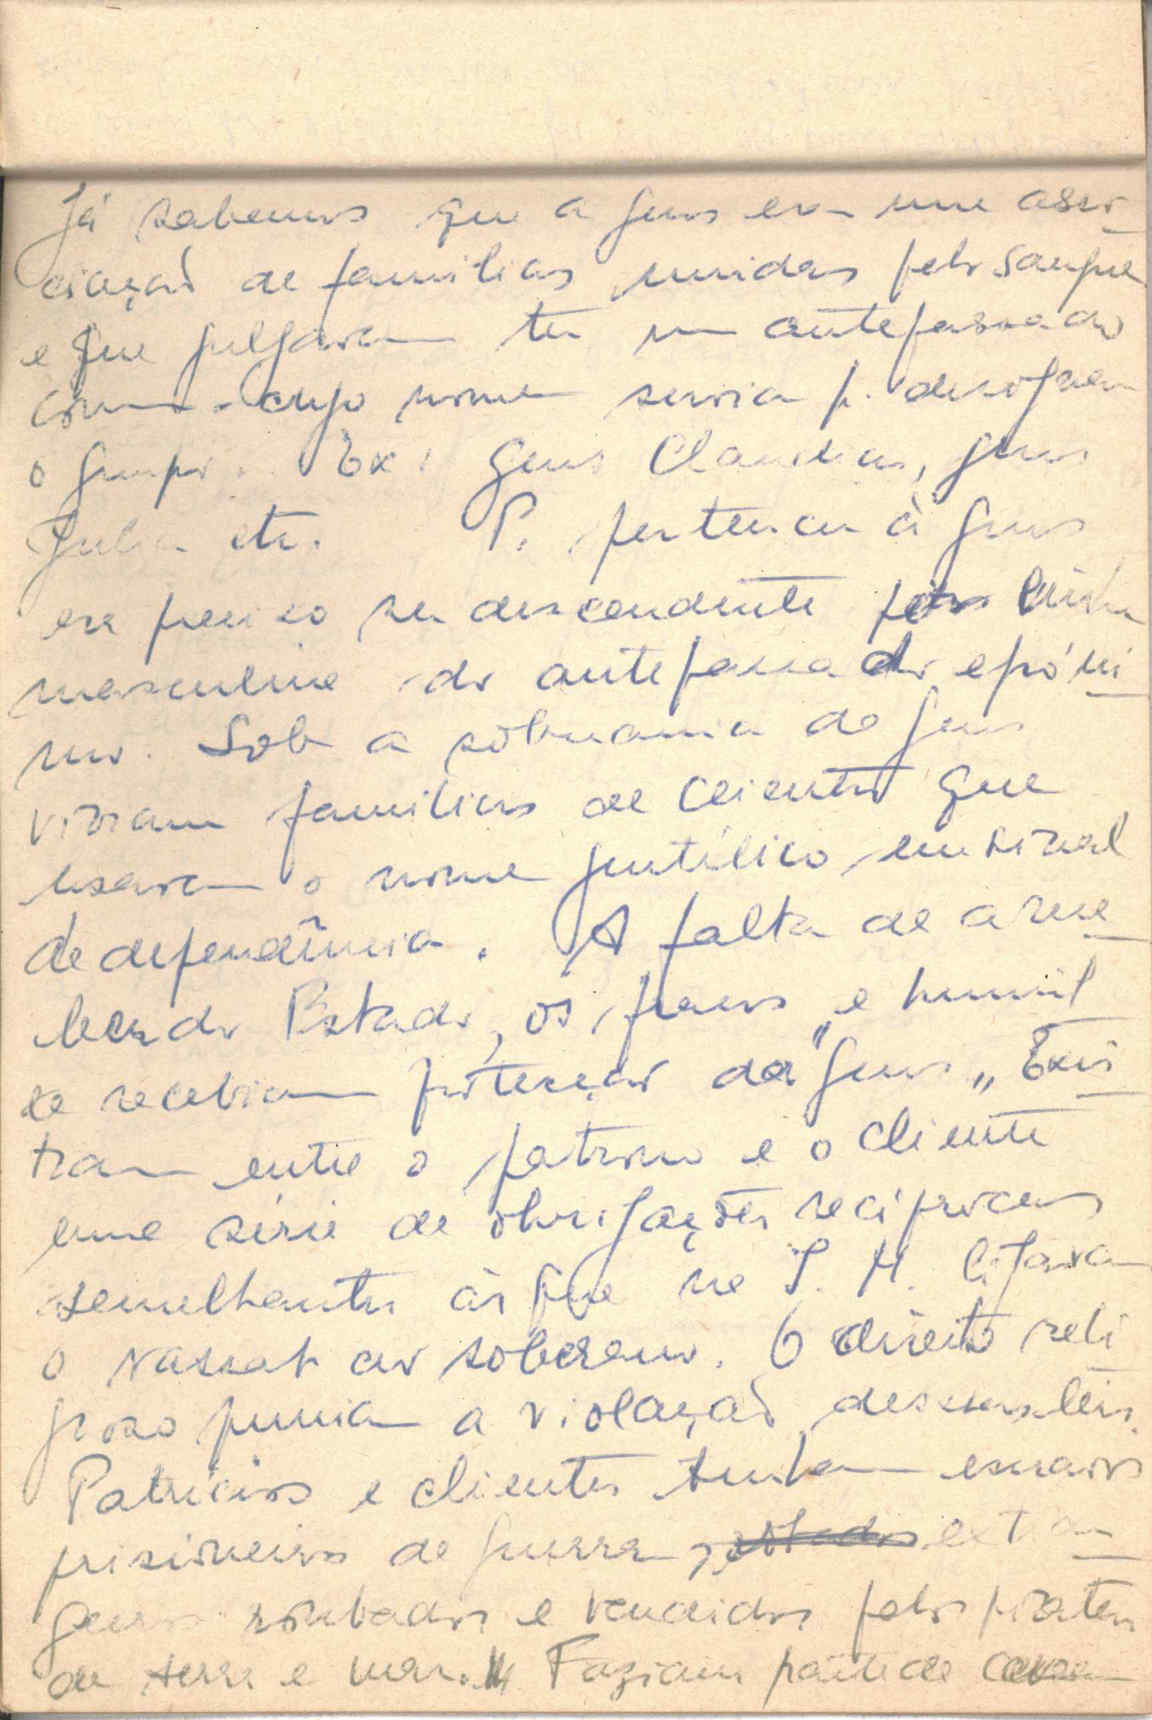 Já sabemos que a gens era uma asso
ciação de familias unidas pelo sangue
e que julgavam ter um antepassado
comum cujo nome servia p. designar
o grupo. Ex: Gens Claudia, gens
Julia etc. P. pertencer à gens
era preciso ser descendente pela linha
masculina do antepassado epóni
mo. Sob a soberania da gens
viviam familias de clientes que
usavam o nome gentílico em sinal
de dependência. A falta de arre
do Estado, os fracos e humil
de recebiam protecção da "gens" Exis
tiam entre o patrono e o cliente
uma série de obrigações recíprocas
semelhantes às que na I. M. ligavam
o vassalo ao soberano. O direito reli
gioso punia a violação destas leis.
Patricios e clientes tinham escravos
prisioneiros de guerra, estran
geiros roubados e vendidos pelos piratas
de terra e mar. Faziam parte de